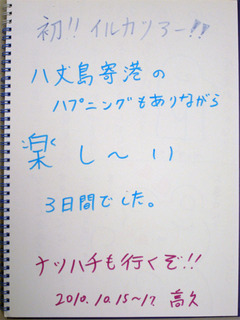 初!! イルカツアー!!
八丈島寄港の
ハプニングもありながら
楽し〜い
3日間でした。
ナツハチも行くぞ!!
2010.10.15〜17 高久